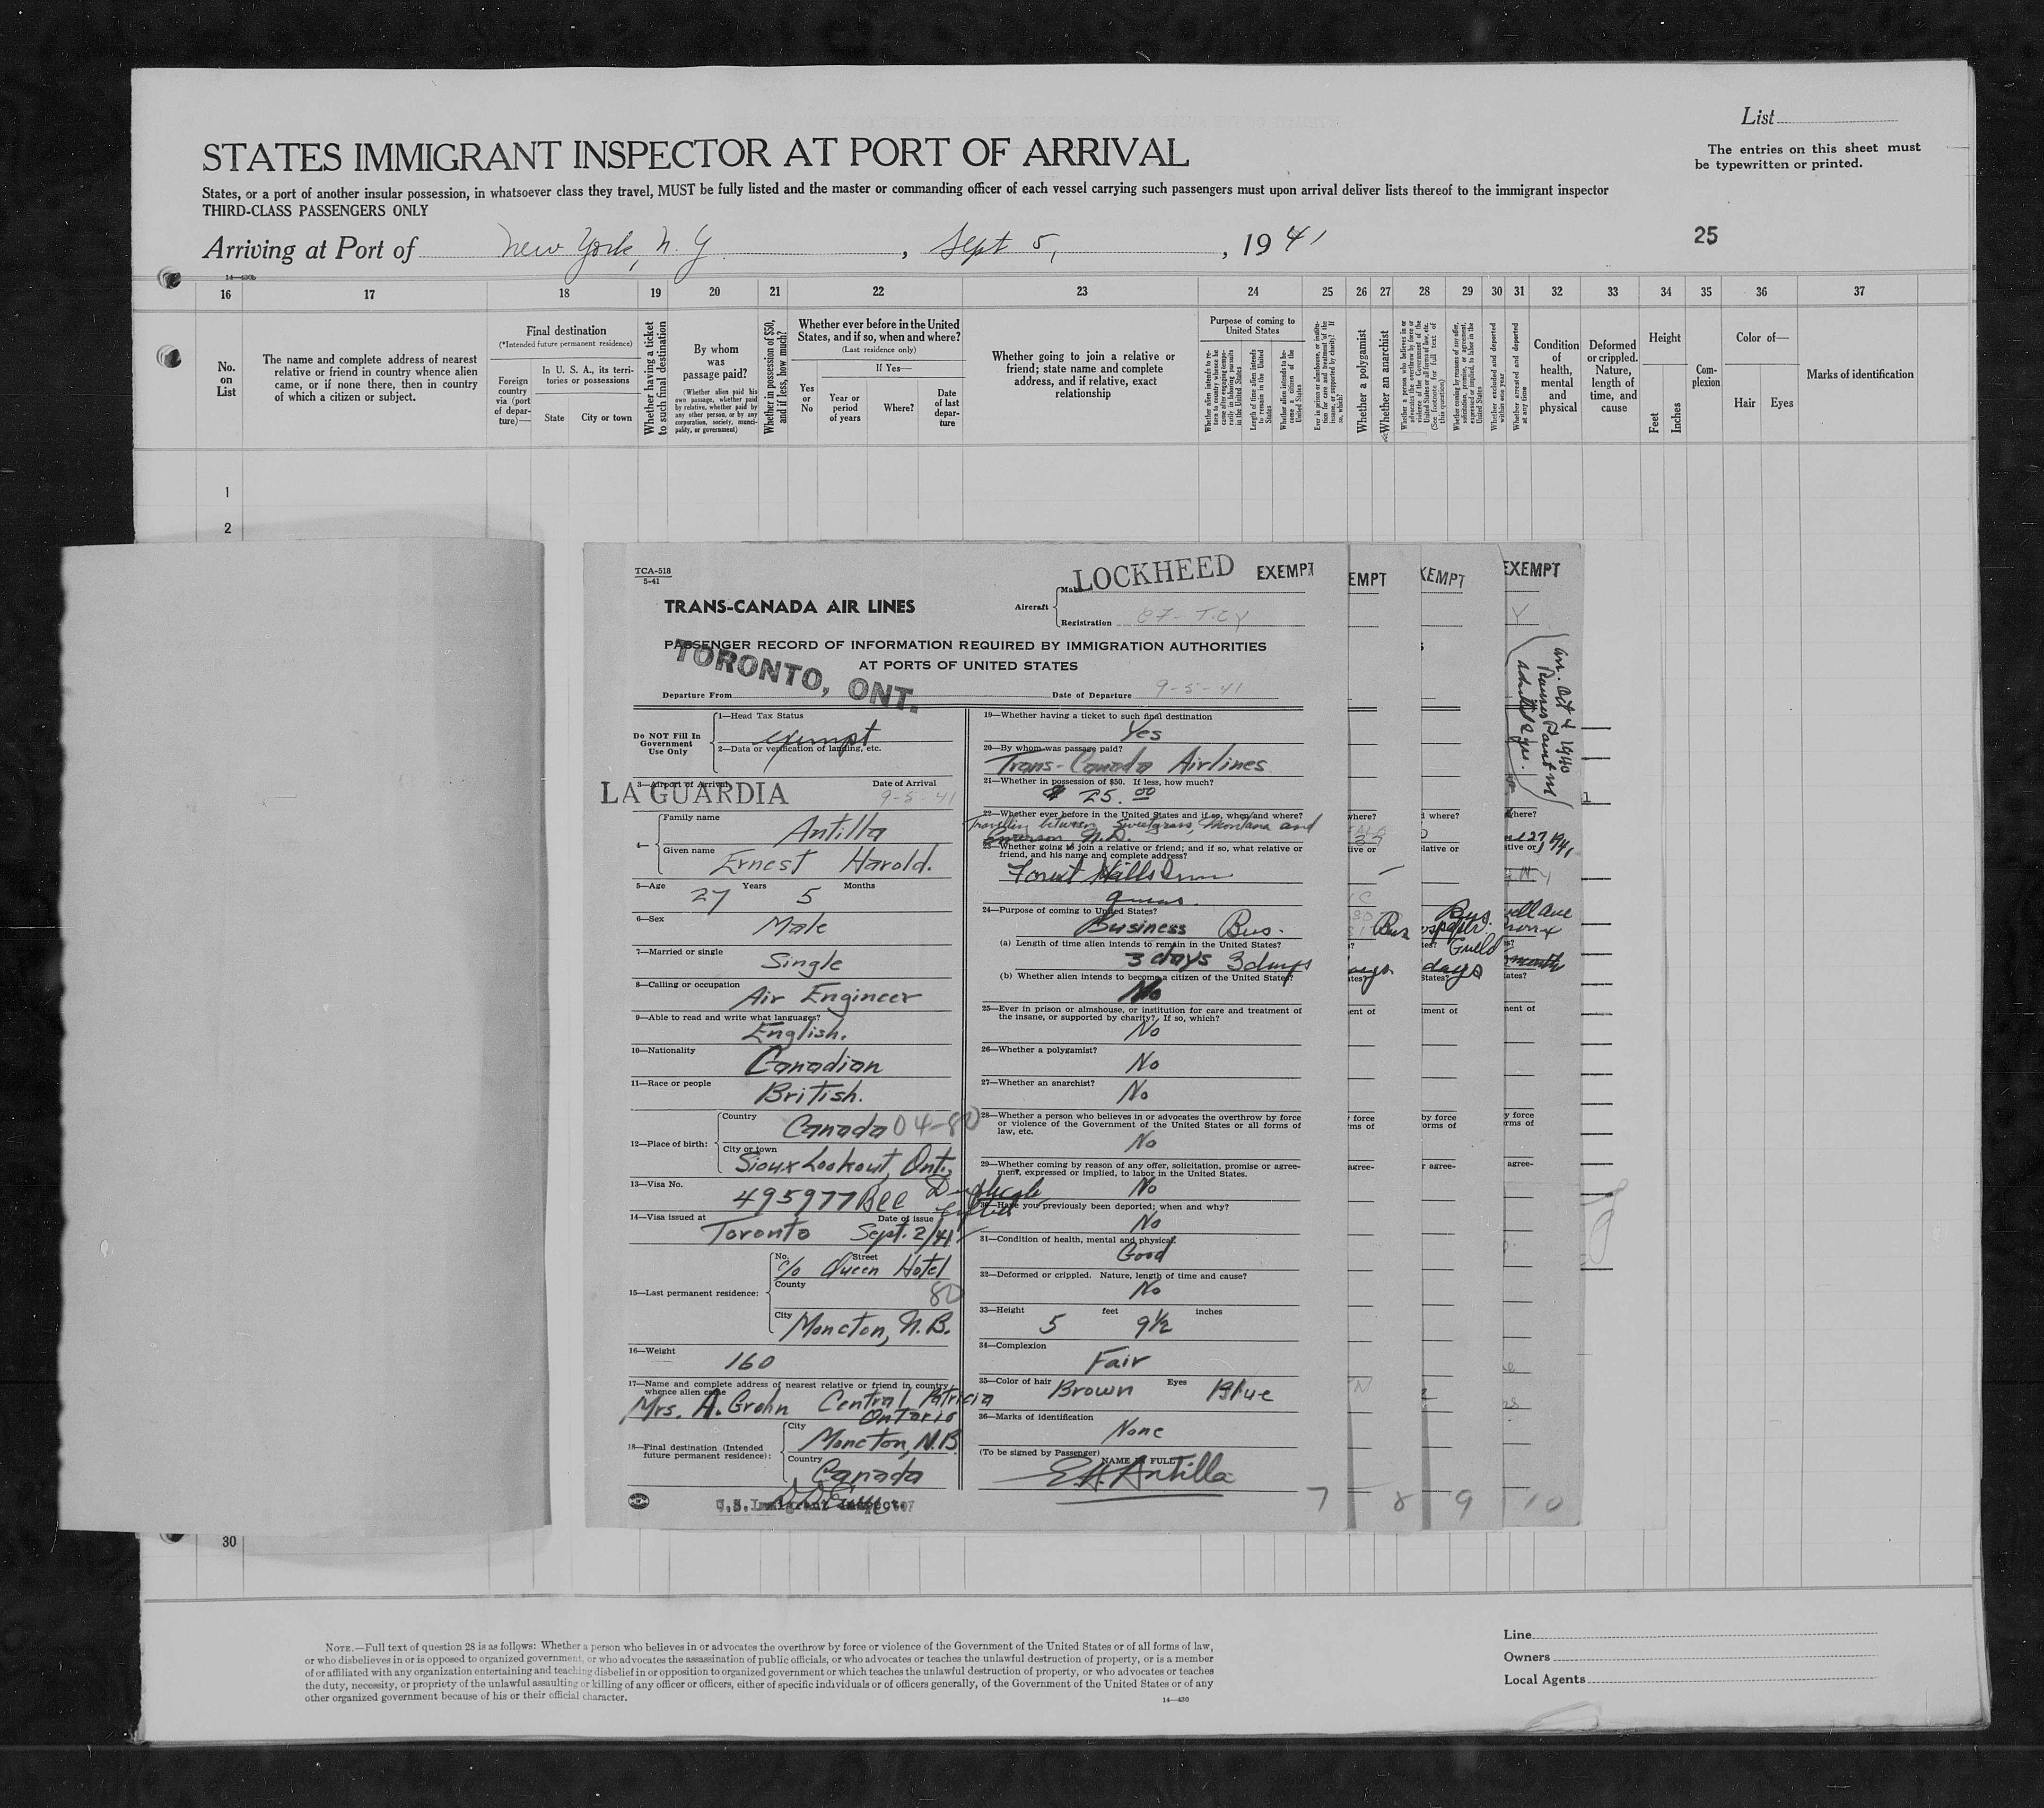 List
STATES IMMIGRANT INSPECTOR AT PORT OF ARRIVAL
The entries on this sheet must
be typewritten or printed.
States, or a port of another insular possession, in whatsoever class they travel, MUST be fully listed and the master or commanding officer of each vessel carrying such passengers must upon arrival deliver lists thereof to the immigrant inspector
THIRD-CLASS PASSENGERS ONLY
Arriving at Port of New York, N. Y., Sept 5, 1941
25
14—430b
16 17 18 19 20 21 22 23 24 25 26 27 28 29 30 31 32 33 34 35 36 37
No.
on
List
The name and complete address of nearest
relative or friend in country whence alien
came, or if none there, then in country
of which a citizen or subject.
Final destination
(*Intended future permanent residence)
Foreign
country
via (port
of depar-
ture)—
In U. S. A., its terri-
tories or possessions
State City or town
Whether having a ticket
to such final destination
By whom
was
passage paid?
(Whether alien paid his
own passage, whether paid
by relative, whether paid by
any other person, or by any
corporation, society, munici-
pality, or government)
Whether in possession of $50,
and if less, how much?
Whether ever before in the United
States, and if so, when and where?
(Last residence only)
Yes
or
No
If Yes—
Year or
period
of years
Where?
Date
of last
depar-
ture
Whether going to join a relative or
friend; state name and complete
address, and if relative, exact
relationship
Purpose of coming to
United States
Whether alien intends to re-
turn to country whence he
came after engaging tempo-
rarily in laboring pursuits
in the United States
Length of time alien intends
to remain in the United
States
Whether alien intends to be-
come a citizen of the
United States
Ever in prison or almshouse, or institu-
tion for care and treatment of the
insane, or supported by charity? If
so, which?
Whether a polygamist
Whether an anarchist
Whether a person who believes in or
advocates the overthrow by force or
violence of the Government of the
United States or all forms of law, etc.
(See footnote for full text of
this question)
Whether coming by reason of any offer,
solicitation, promise, or agreement,
expressed or implied, to labor in the
United States
Whether excluded and deported
within one year
Whether arrested and deported
at any time
Condition
of
health,
mental
and
physical
Deformed
or crippled.
Nature,
length of
time, and
cause
Height
Feet
Inches
Com-
plexion
Color of—
Hair Eyes
Marks of identification
1
2
TCA-518
5-41
TRANS-CANADA AIR LINES
Aircraft
Make LOCKHEED
EXEMPT
Registration CF-TCY
PASSENGER RECORD OF INFORMATION REQUIRED BY IMMIGRATION AUTHORITIES
AT PORTS OF UNITED STATES
Departure From TORONTO, ONT. Date of Departure 9-5-41
Do NOT Fill In
Government
Use Only
1—Head Tax Status
exempt
2—Data or verification of landing, etc.
3—Airport of Arrival Date of Arrival
LA GUARDIA 9-5-41
4— Family name Antilla
Given name Ernest Harold.
5—Age 27 Years 5 Months
6—Sex Male
7—Married or single Single
8—Calling or occupation Air Engineer
9—Able to read and write what languages?
English.
10—Nationality Canadian
11—Race or people British.
12—Place of birth: Country Canada 04-80
City or town Sioux Lookout, Ont.
13—Visa No. 495977 Bcc Duplicate
14—Visa issued at Toronto Date of issue Sept. 2/41
15—Last permanent residence:
No. Street
c/o Queen Hotel
County 80
City Moncton, N.B.
16—Weight 160
17—Name and complete address of nearest relative or friend in country
whence alien came
Mrs. A. Grohn Central Patricia
Ontario
18—Final destination (Intended
future permanent residence):
City Moncton, N.B.
Country Canada
U.S. Immigrant Inspector
19—Whether having a ticket to such final destination
Yes
20—By whom was passage paid?
Trans-Canada Airlines
21—Whether in possession of $50. If less, how much?
$ 25.00
22—Whether ever before in the United States and if so, when and where?
Travelling between Sweetgrass, Montana and
Emerson N.D.
23—Whether going to join a relative or friend; and if so, what relative or
friend, and his name and complete address?
Forest Hills Inn
24—Purpose of coming to United States?
Business Bus.
(a) Length of time alien intends to remain in the United States?
3 days 3 days
(b) Whether alien intends to become a citizen of the United States?
No
25—Ever in prison or almshouse, or institution for care and treatment of
the insane, or supported by charity? If so, which?
No
26—Whether a polygamist?
No
27—Whether an anarchist?
No
28—Whether a person who believes in or advocates the overthrow by force
or violence of the Government of the United States or all forms of
law, etc.
No
29—Whether coming by reason of any offer, solicitation, promise or agree-
ment, expressed or implied, to labor in the United States.
No
30—Have you previously been deported; when and why?
No
31—Condition of health, mental and physical.
Good
32—Deformed or crippled. Nature, length of time and cause?
No
33—Height 5 feet 9½ inches
34—Complexion
Fair
35—Color of hair Brown Eyes Blue
36—Marks of identification
None
(To be signed by Passenger)
NAME IN FULL
E.H. Antilla
7 8 9 10
EMPT
XEMPT
EXEMPT
Bus
Bus.
Guild
days
30
NOTE.—Full text of question 28 is as follows: Whether a person who believes in or advocates the overthrow by force or violence of the Government of the United States or of all forms of law,
or who disbelieves in or is opposed to organized government, or who advocates the assassination of public officials, or who advocates or teaches the unlawful destruction of property, or is a member
of or affiliated with any organization entertaining and teaching disbelief in or opposition to organized government or which teaches the unlawful destruction of property, or who advocates or teaches
the duty, necessity, or propriety of the unlawful assaulting or killing of any officer or officers, either of specific individuals or of officers generally, of the Government of the United States or of any
other organized government because of his or their official character.
14—430
Line
Owners
Local Agents